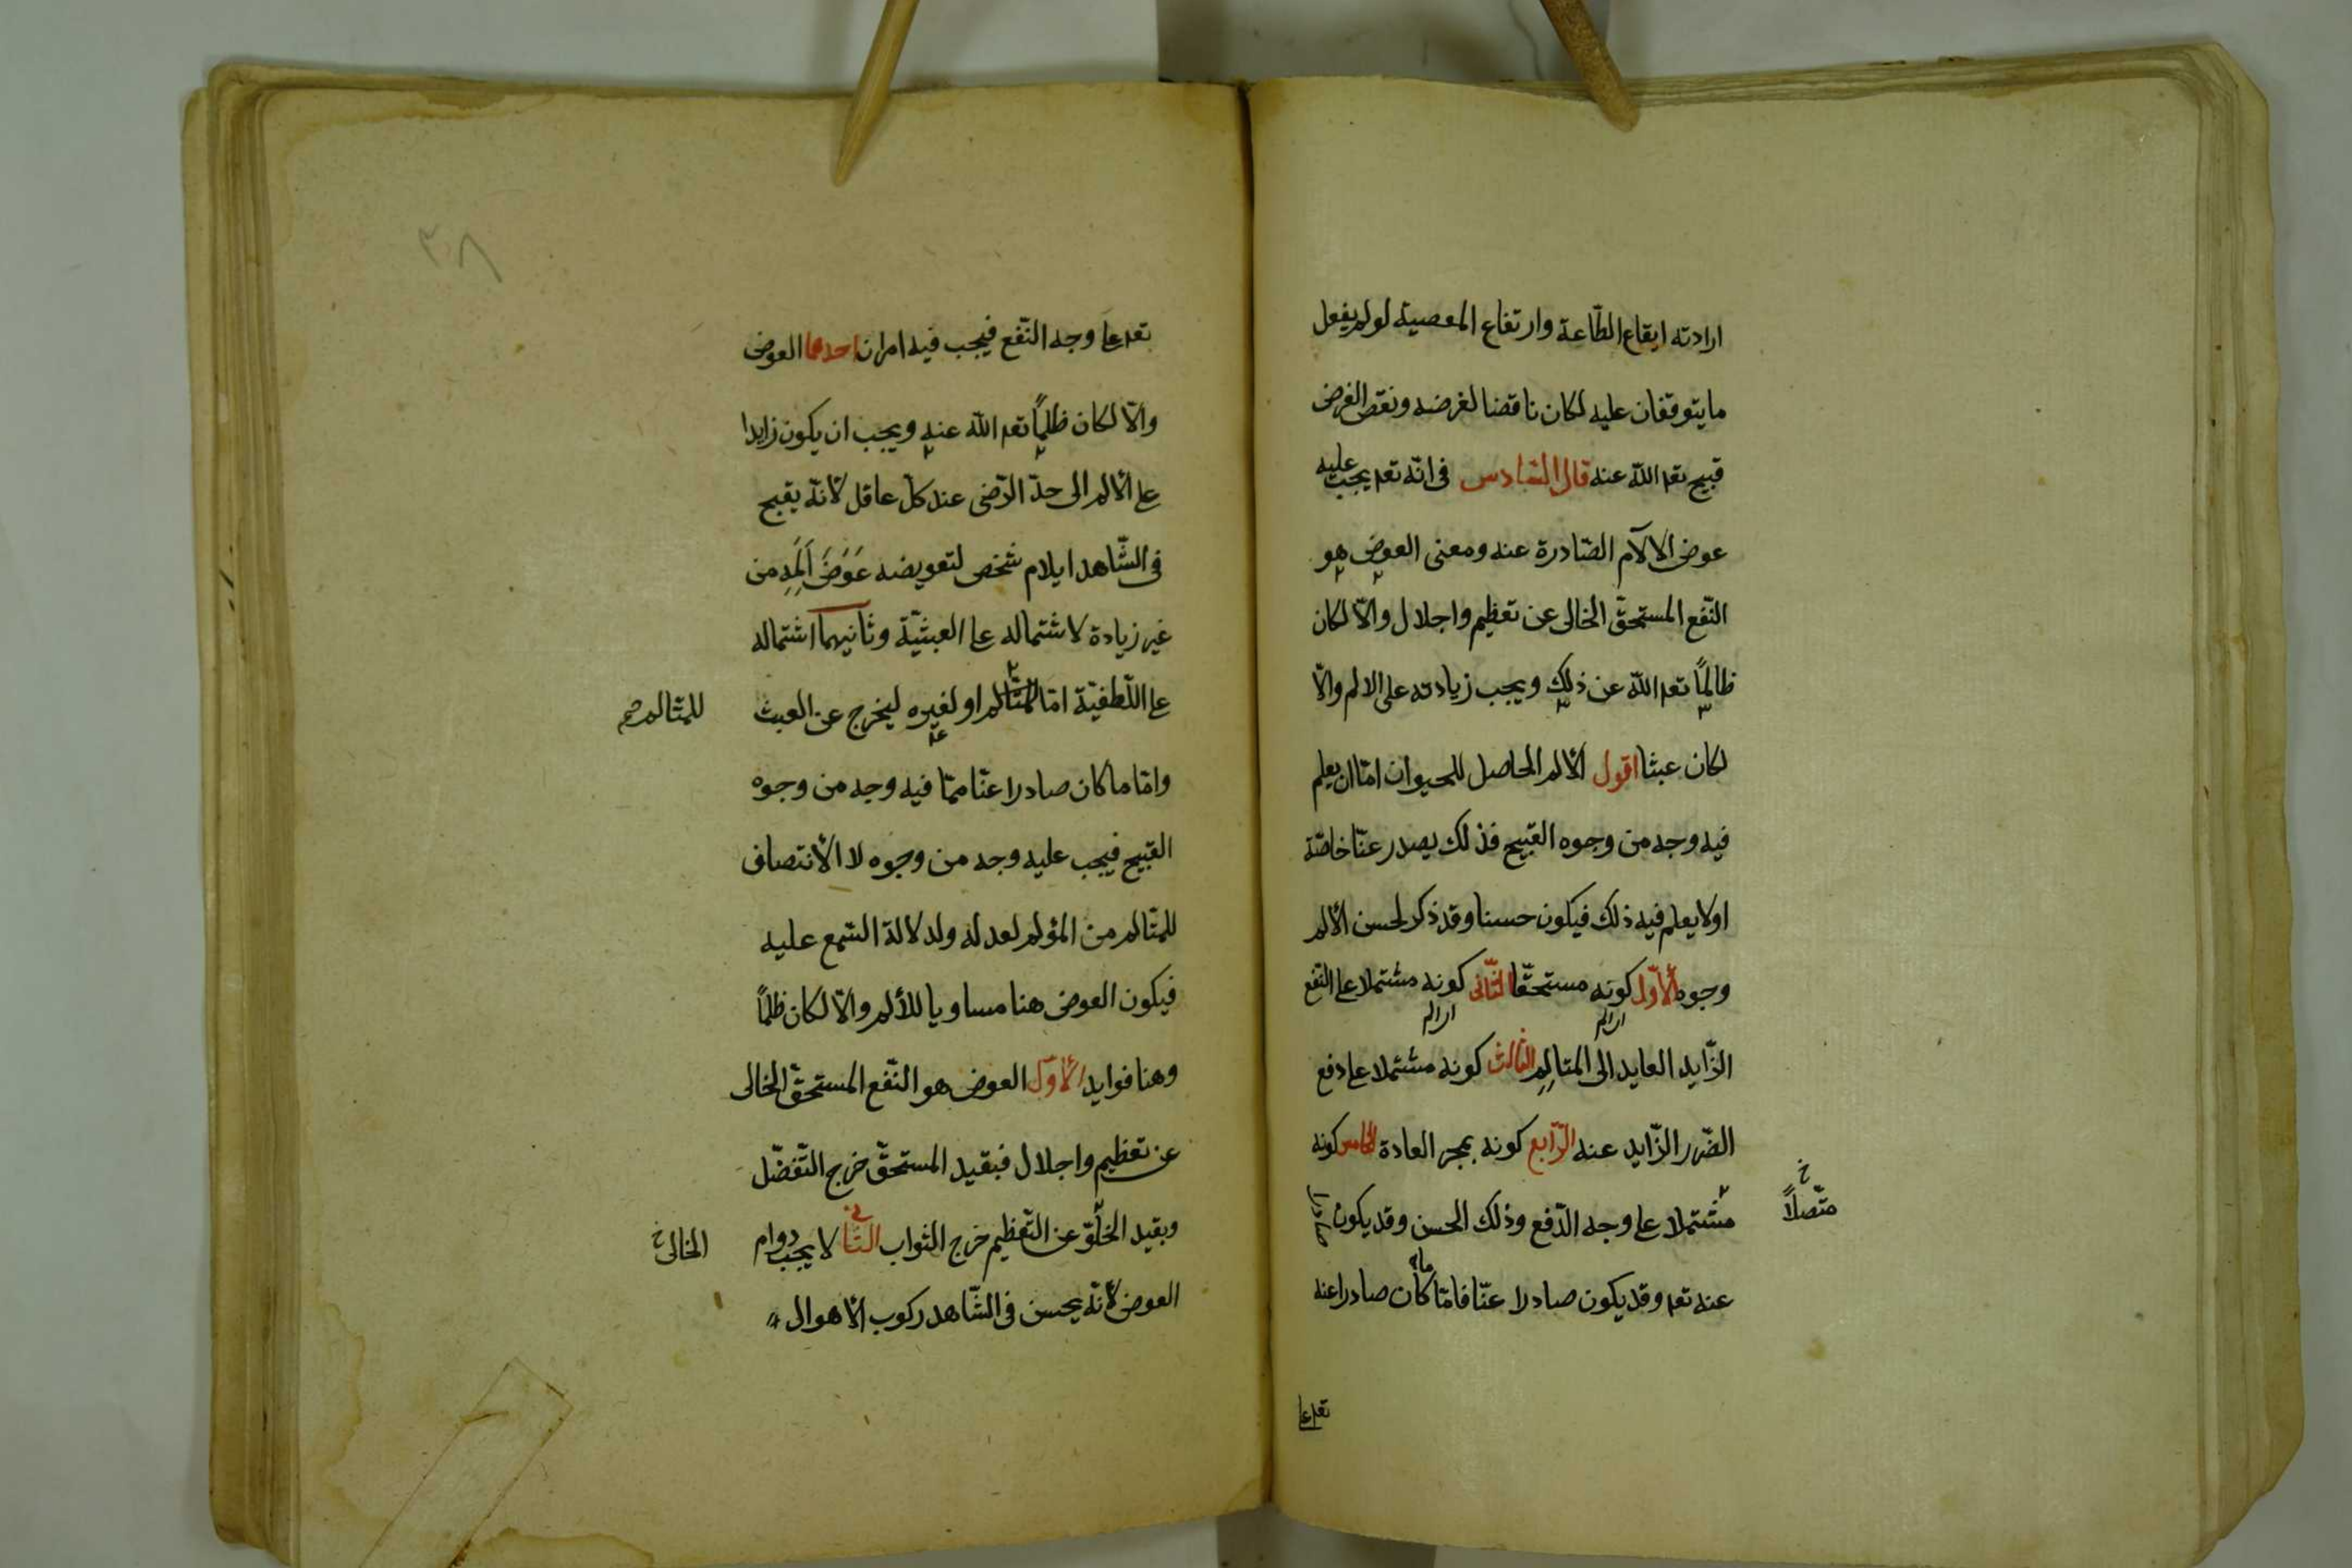 ارادته ايقاع الطّاعة وارتفاع المعصية لو لم يفعل
ما يتوقفان عليه لكان ناقضا لغرضه ونقض الغرض
قبيح تعم الله عنه قال السّادس فى انّه تعم يجب عليه
عوض الالآم الصّادرة عنه ومعنى العوض هو
النّفع المستحقّ الخالى عن تعظيم واجلال والّا لكان
ظالمًا تعم الله عن ذلك ويجب زيادته على الالم والّا
لكان عبثا اقول الألم الحاصل للحيوان امّا ان يعلم
فيه وجه من وجوه القبيح فذلك يصدر عنّا خاصّة
اولا يعلم فيه ذلك فيكون حسنا وقد ذكر لحسن الألم
وجوه الأوّل كونه مستحقّا الثّانى كونه مشتملا عا النّفع
الزّايد العايد الى المتالم الثالث كونه مشتملا عا دفع
الضّرر الزّايد عنه الرّابع كونه بمجر العادة الخامس كونه
متّصلاً خ
مشتملا عا وجه الدّفع وذلك الحسن وقد يكون صادرا
عنه تعم وقد يكون صادرا عنّا فامّا ما كان صادرا عنه
تعم عا
٣٨
تعم عا وجه النّفع فيجب فيه امران احدهما العوض
والّا لكان ظلمًا تعم الله عنه ويجب ان يكون زايدا
عا الألم الى حدّ الرّضى عند كلّ عاقل لأنّه يقبح
فى الشّاهد ايلام شخص لتعويضه عَوَضَ اَلَمِهِ من
غير زيادة لاشتماله عا العبثيّة وثانيهما اشتماله
عا اللّطفيّة امّا للمتالم او لغيره ليخرج عن العبث
للمتالم
وامّا ما كان صادرا عنّا ممّا فيه وجه من وجوه
القبيح فيجب عليه وجه من وجوه لا الأنتصاف
للمتالم من المؤلم لعدله ولدلالة السّمع عليه
فيكون العوض هنا مساويا للألم والّا لكان ظلمًا
وهنا فوايد الأوّل العوض هو النّفع المستحقّ الخالى
عن تعظيم واجلال فبقيد المستحقّ خرج التّفضّل
وبقيد الخلّوّ عن التّعظيم خرج الثواب الثّانى لا يجب دوام
الخالى خ
العوض لأنّه يحسن فى الشّاهد ركوب الأهوال